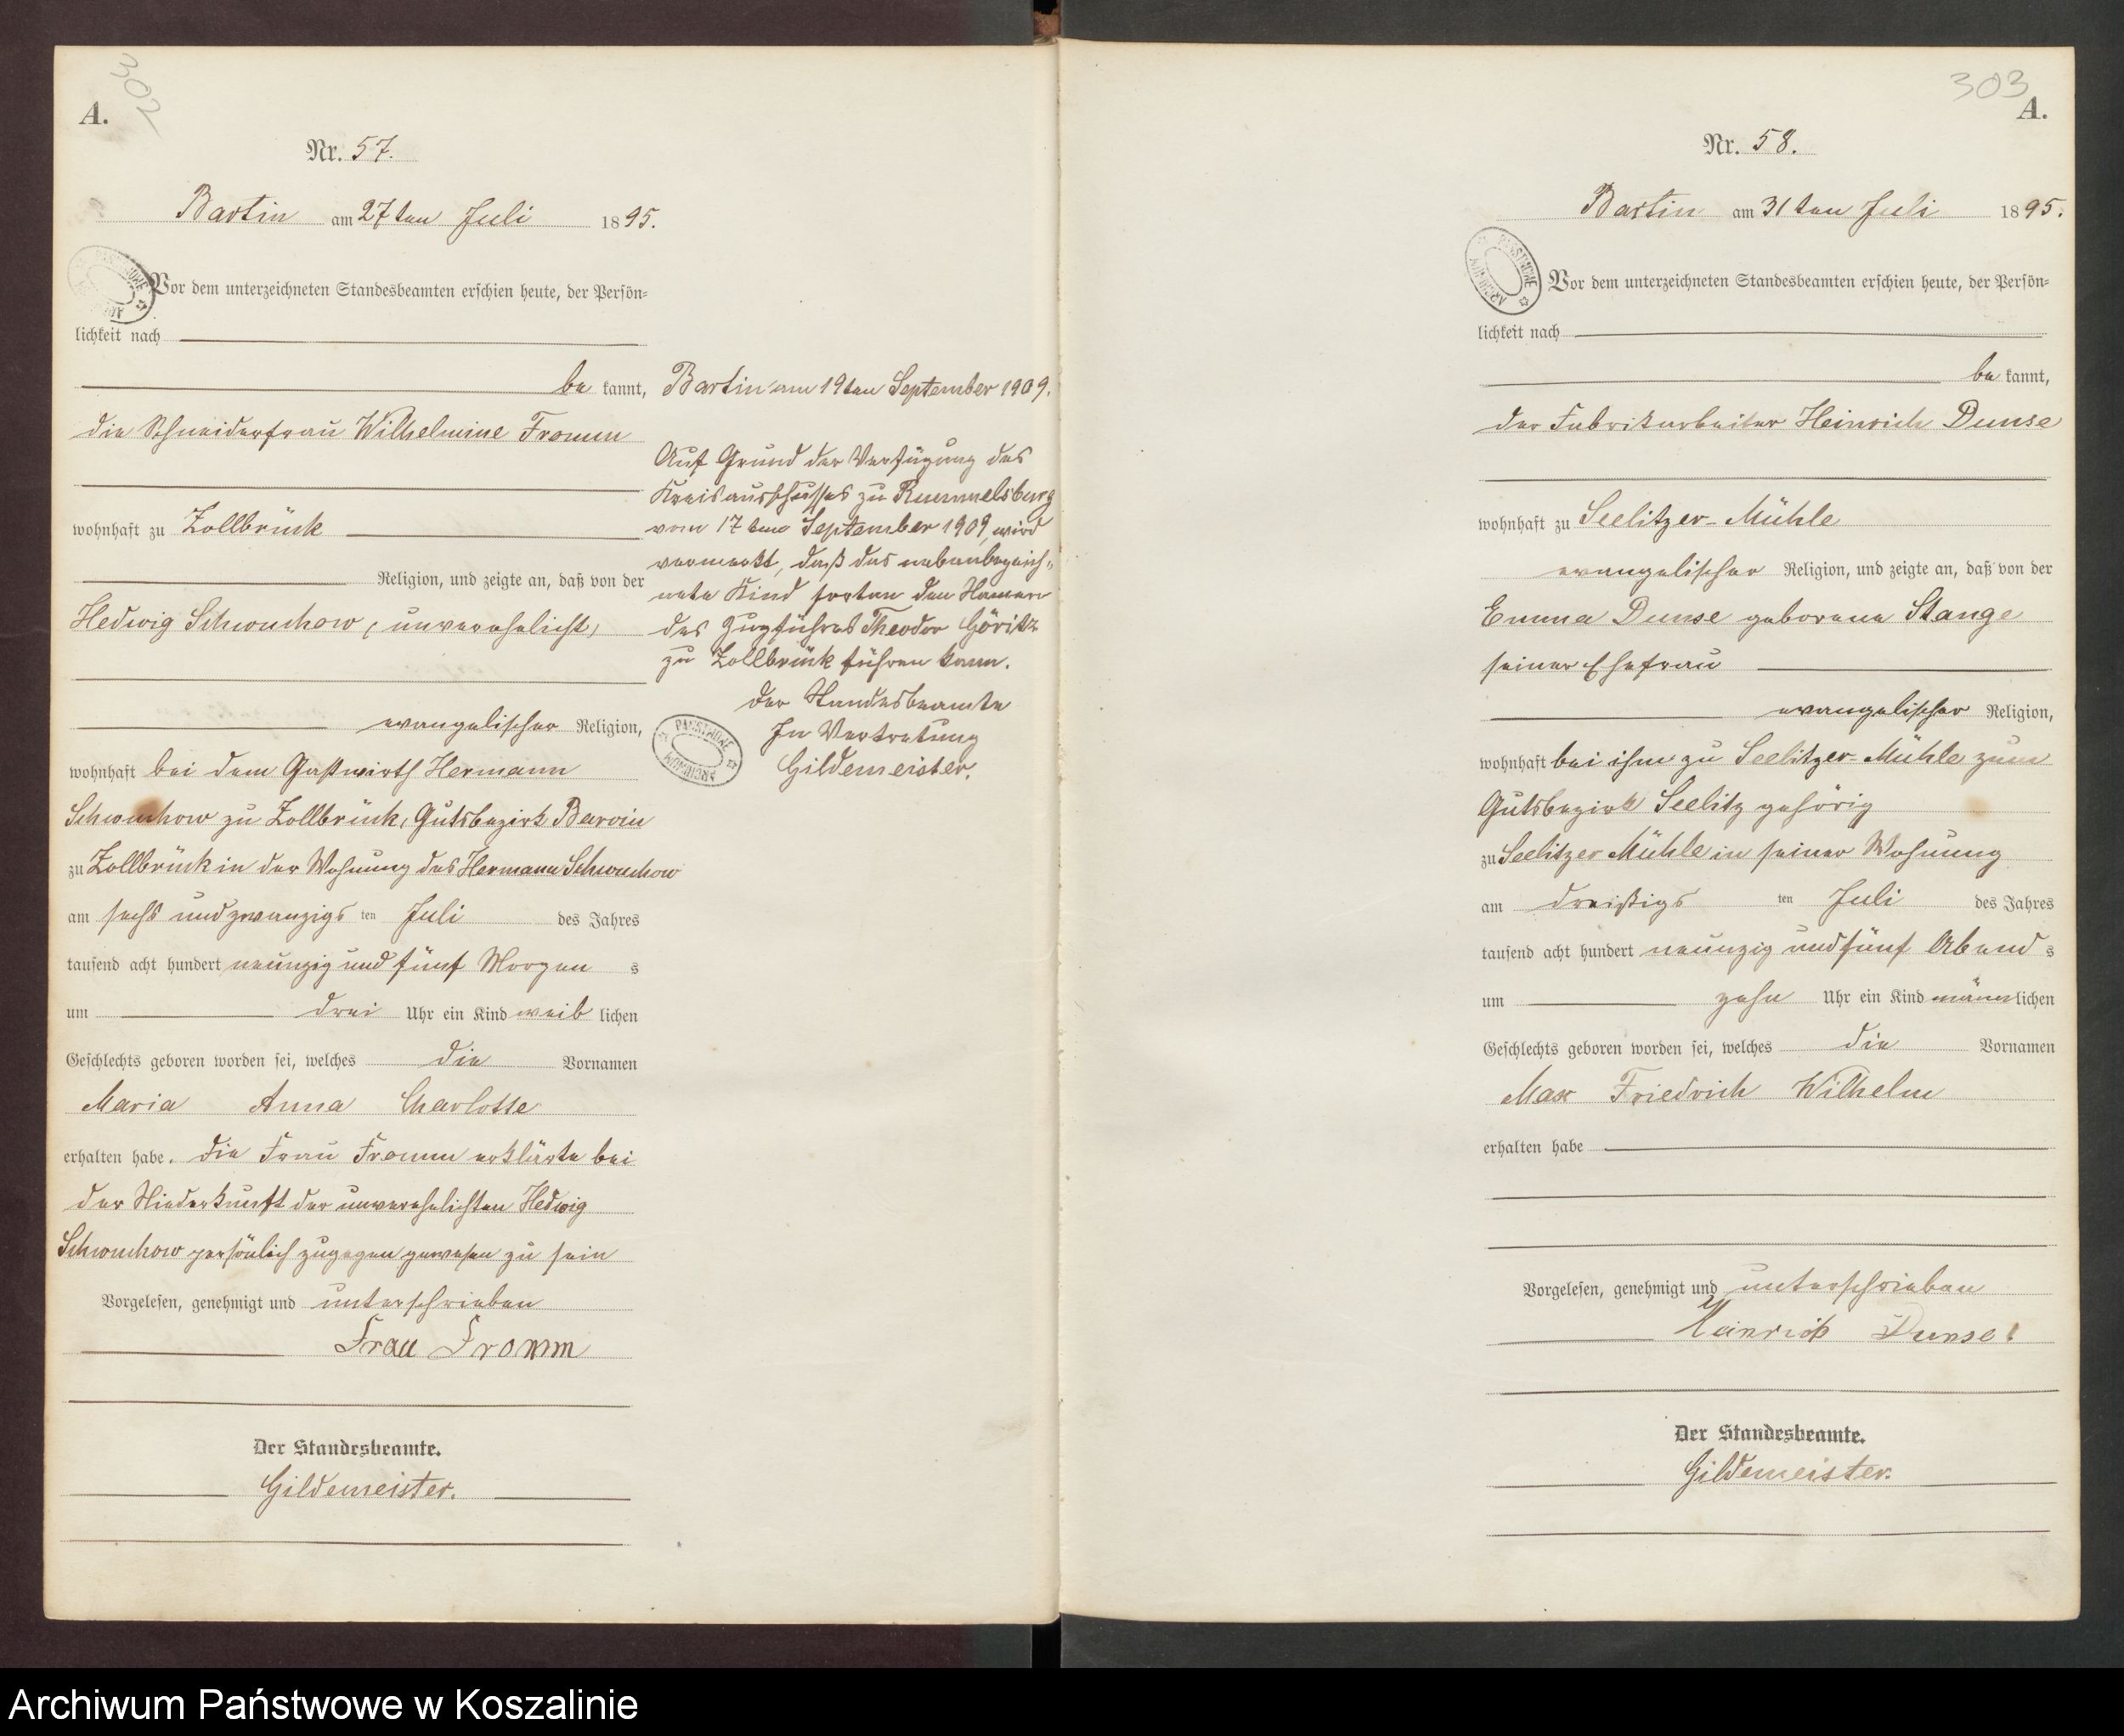 302
A.
Nr. 57.
Bartin am 27ten Juli 1895.
Vor dem unterzeichneten Standesbeamten erschien heute, der Persön=
lichkeit nach
be kannt,
die Schneiderfrau Wilhelmine Fromm
wohnhaft zu Zollbrück
Religion, und zeigte an, daß von der
Hedwig Schwuchow, unverehelicht,
evangelischer Religion,
wohnhaft bei dem Gastwirth Hermann
Schwuchow zu Zollbrück, Gutsbezirk Barvin
zu Zollbrück in der Wohnung des Hermann Schwuchow
am sechs und zwanzigs ten Juli des Jahres
tausend acht hundert neunzig und fünf Morgen s
um drei Uhr ein Kind weib lichen
Geschlechts geboren worden sei, welches die Vornamen
Maria Anna Charlotte
erhalten habe. Die Frau Fromm erklärte bei
der Niederkunft der unverehelichten Hedwig
Schwuchow persönlich zugegen gewesen zu sein
Vorgelesen, genehmigt und unterschrieben
Frau Fromm
Der Standesbeamte.
Gildemeister.
Bartin am 19ten September 1909.
Auf Grund der Verfügung des
Kreisausschusses zu Rummelsburg
vom 17ten September 1909, wird
vermerkt, daß das nebenbezeich=
nete Kind fortan den Namen
des Zugführers Theodor Göritz
zu Zollbrück führen kann.
Der Standesbeamte
In Vertretung
Gildemeister.
PAŃSTWOWE ARCHIWUM
303
A.
Nr. 58.
Bartin am 31ten Juli 1895.
PAŃSTWOWE ARCHIWUM
Vor dem unterzeichneten Standesbeamten erschien heute, der Persön=
lichkeit nach
be kannt,
der Fabrikarbeiter Heinrich Dunse
wohnhaft zu Seelitzer-Mühle
evangelischer Religion, und zeigte an, daß von der
Emma Dunse geborene Stange
seiner Ehefrau
evangelischer Religion,
wohnhaft bei ihm zu Seelitzer-Mühle zum
Gutsbezirk Seelitz gehörig
zu Seelitzer Mühle in seiner Wohnung
am dreißigs ten Juli des Jahres
tausend acht hundert neunzig und fünf Abend s
um zehn Uhr ein Kind männlichen
Geschlechts geboren worden sei, welches die Vornamen
Max Friedrich Wilhelm
erhalten habe
Vorgelesen, genehmigt und unterschrieben
Heinrich Dunse
Der Standesbeamte.
Gildemeister.
Archiwum Państwowe w Koszalinie